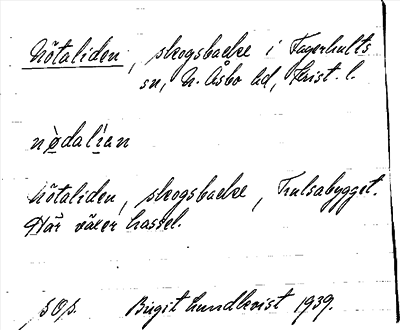 Nötaliden, skogsbacke i Fagerhults
sn, N. Åsbo hd, Krist. l.
nø̀dalían
Nötaliden, skogsbacke, Hulsabygget.
Här växer hassel.
Birgit Lundkvist 1939.